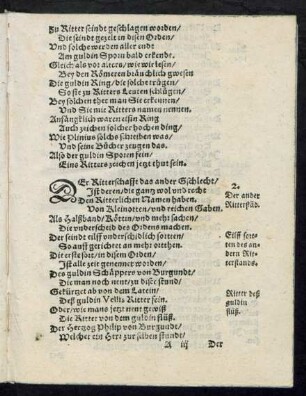 Zu Ritter seindt geschlagen worden/
Die seindt gezelt in disen Orden/
Und solche werden aller endt
Am guldin Sporn bald erkendt.
Gleich als vor alters/ wie wir lesen/
Bey den Römeren bräuchlich gwesen
Die guldin Ring/ die solche trügen/
So sie zu Ritters Leuten schlügen/
Bey solchen thet man sie erkennen/
Und Sie mit Ritters namen nennen.
Anfängklich waren eissin Ring
Auch zeichen solcher hochen ding/
Wie Plinius solchs schreiben was/
Und seine Bücher zeugen das.
Also der guldin Sporen sein/
Eins Ritters zeichen jetzt thut sein.
DEr Ritterschafft das ander Gschlecht/
Ist deren/ die gantz wol und recht
Den Ritterlichen Namen haben.
Von Kleinotten/ und reichen Gaben.
Als Halßband/ Kötten/ und mehr sachen/
Die underscheid des Ordens machen.
Der seindt eilff underschidlich sorten/
So aufft gerichtet an mehr ortthen.
Die erste sort/ in disem Orden.
Ist alle zeit genennet worden/
Des guldin Schäppers von Burgundt/
Die man noch nent/ zu diser stund/
Gekürtzet ab von dem Latein/
Deß guldin Vellis Ritter sein.
Oder/ wie mans jetzt nent gewiß
Die Ritter von dem guldin flüß.
Der Hertzog Philip von Burgundt/
Welcher ein Herr zur selben stundt/
A iij Der
2.
Der ander
Ritterstād.
Eilff sor-
ten des an-
dern Rit-
terstands.
Ritter deß
guldin
flüß.